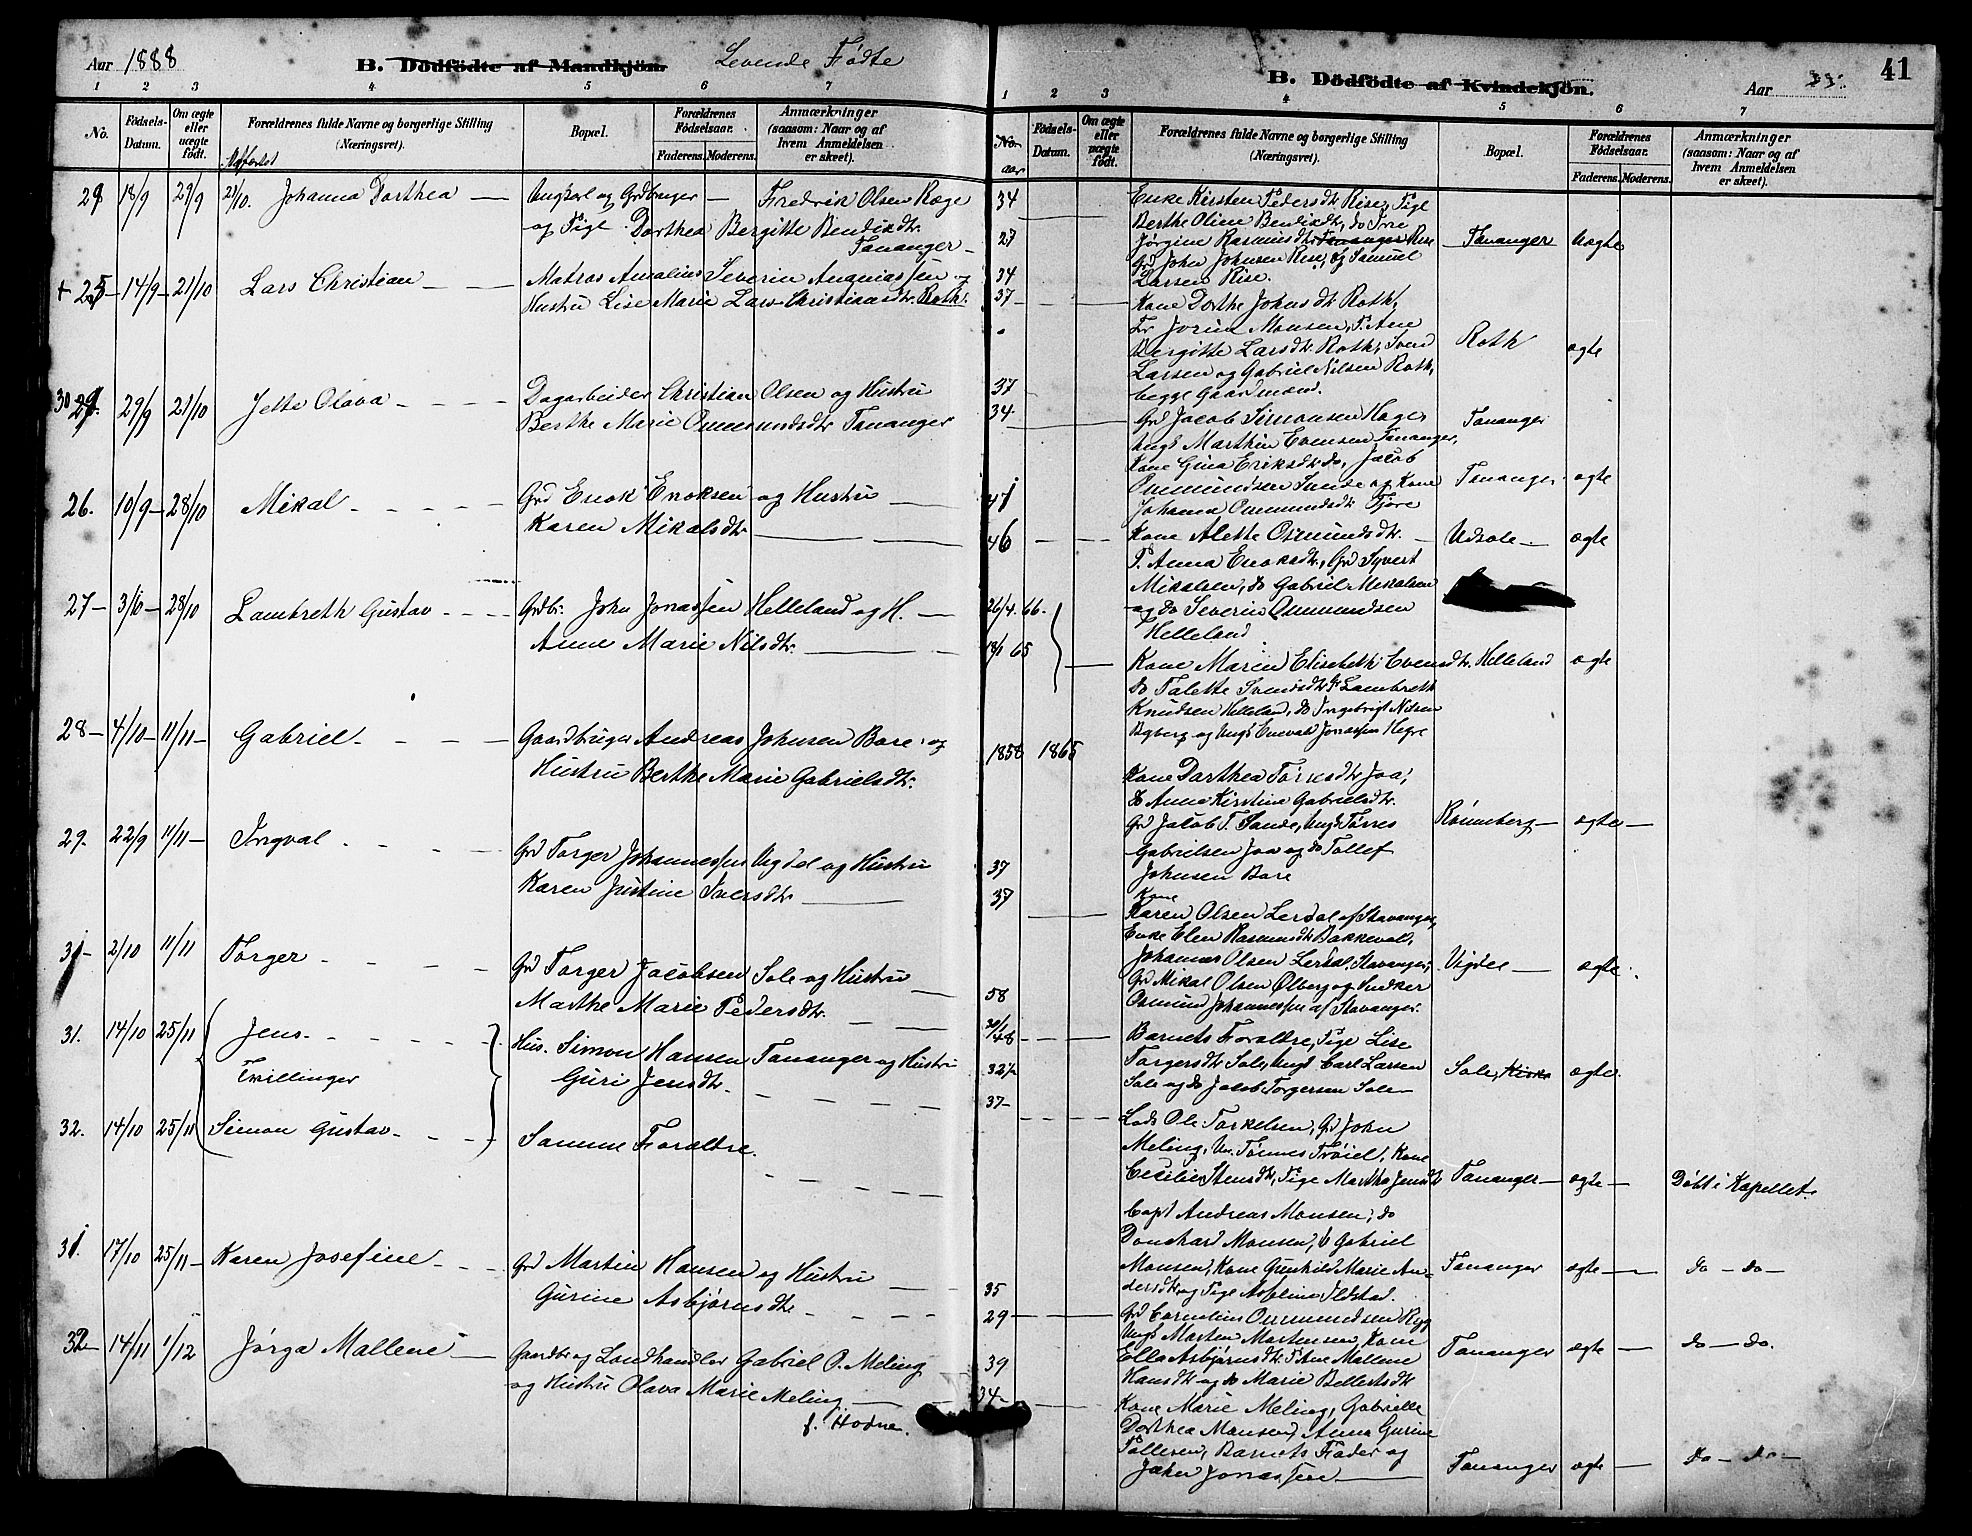 Aar 1888
B. Dödfödte af Mandkjön. Levende Fødte
1 2 3 4 5 6 7
No.
Födsels-Datum.
Om ægte eller uægte födt.
Forældrenes fulde Navne og borgerlige Stilling (Næringsvei).
Bopæl.
Forældrenes Födselsaar.
Faderens. Moderens.
Anmærkninger (saasom: Naar og af hvem Anmeldelsen er skeet).
18/9 29/9 21/10. Johanna Dorthea — Ungkarl og Grdbruger — Fredrik Olsen Ræge
og Pige Dorthea Bergitte Bendiksdtr.
Tananger —
+ 25 — 14/9 — 21/10 Lars Christian — — Matros Amalius Severin Ananiassen og
Hustru Lise Marie Lars Christiansdtr Roth.
30 29/9 21/10 Jette Olava — — — Dagarbeider Christian Olsen og Hustru
Berthe Marie Osmundsdtr Tananger
26. 10/9 — 28/10 Mikal — — — Grd Enok Enoksen og Hustru —
Karen Mikalsdtr. —
27 — 3/10 — 28/10 Lambreth Gustav — — — Grdbr. John Jonassen Helleland og H. —
Anne Marie Nilsdtr. —
28 — 4/10 — 11/11 — Gabriel — — — Gaardbruger Andreas Johnsen Bore og
Hustru Berthe Marie Gabrielsdtr.
29. 22/9 11/11 — Ingval — — — Grd Torger Johannessen Vigdel og Hustru
Karen Justine Iversdtr —
2/10 11/11 Torger — — — Grd Torger Jacobsen Sole og Hustru —
Marthe Marie Pedersdtr. — —
31. 14/10 25/11 Jens — — — Hus. Simon Hansen Tananger og Hustru
Tvillinger Guri Jensdtr. — — —
32. 14/10 25/11 Simon Gustav — — — Samme Forældre.
31. 17/10 25/11 — Karen Josefine — — — Grd Martin Hansen og Hustru —
Gurine Asbjørnsdtr — — —
32 — 14/11 1/12 Jørga Mallene — Gaardbr og Landhandler Gabriel P. Meling —
og Hustru Olava Marie Meling —
f. Hodne.
B. Dödfödte af Kvindekjön.
Aar
41
1 2 3 4 5 6 7
No. aar
Födsels-Datum.
Om ægte eller uægte födt.
Forældrenes fulde Navne og borgerlige Stilling (Næringsvei).
Bopæl.
Forældrenes Födselsaar.
Faderens. Moderens.
Anmærkninger (saasom: Naar og af hvem Anmeldelsen er skeet).
34 Enke Kirsten Pedersdtr Rise, Pige
Berthe Oline Bendiksdtr, do Ine
27 Jørgine Rasmusdtr Tananger Rise Tananger Uægte
Grd John Johnsen Rise, og Samuel
34 Larsen Rise.
37 — Kone Dorthe Johnsdtr Roth,
Jorine Monsen, P. Ane
Bergitte Larsdtr. Roth, Svend Roth ægte
Larsen og Gabriel Nilsen Roth,
37 begge Gaardmænd.
34 Grd Jacob Simonsen Hage, Tananger
Ungk Marthin Evensen Tananger,
Kone Gina Eriksdtr do, Jacob
Osmundsen Sunde og Kone Tananger ægte
Johanna Osmundsdtr Tjore
46 — — — Kone Alette Osmundsdtr. — Udsole — ægte
P. Anna Enoksdtr, Grd Syvert
Mikalsen, do Gabriel Mikalsen
26/4. 66. og do Severin Osmundsen
Helleland
18/1 65 Kone Maren Elisabeth Evensdtr. Helleland ægte
do Talette Svendsdtr Gr Lambreth
Knudsen Helleland, do Ingebrigt Nilsen
Byberg og Ungk Enevald Jonassen Hegre
1858 1865
Kone Dorthea Tørresdtr Joa,
do Anna Kirstine Gabrielsdtr.
Grd Jacob T. Sande, Ungk Tørres Rønneberg — ægte —
Gabrielsen Joa og do Tollef
37 Johnsen Bore
37 Kone
Karen Olsen Lerdal af Stavanger,
Enke Elen Rasmusdtr Bakkevold,
Johannes Olsen Lerdal, Stavanger, Vigdel — ægte.
Grd Mikal Olsen Ølberg og Snedker
58 Osmund Johannessen af Stavanger.
30/1 48 — — — Barnets Forældre, Pige Lise
32 Torgersdtr Sole, Ungk Carl Larsen Sole, ægte.
Sole og do Jacob Torgersen Sole
37 — — — — Lods Ole Torkelsen, Grd John
Meling, Un. Tønnes Trøiel, Kone
Cecilie Stensdtr, Pige Martha Jensdtr Tananger — ægte — Døbt i Kapellet.
Capt Andreas Monsen, do
Donchard Monsen, Gabriel
Monsen, Kone Gunhild Marie An- Tananger ægte — do — do —
35 dersdtr, og Pige Asseline Ildstad.
29 — — Grd Cornelius Osmundsen Ryg
Ungk Morten Mortensen, Kone
39 Ella Asbjørnsdtr, P. Ane Mallene Tananger ægte — do — do.
Hansdtr og do Marie Bellertsdtr
34 — Kone Marie Meling, Gabrielle
Dorthea Monsen, Anna Gurine
Tollesen, Barnets Fader og
John Jonassen — Tananger ægte — do — do —